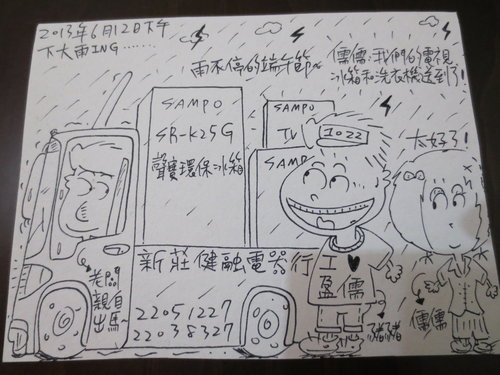 2013年6月12日下午
下大雨ING......
雨不停的端午節~
儒儒:我們的電視
冰箱和洗衣機送到了!
太好了!
SAMPO
SR-K25G
聲寶環保冰箱
SAMPO
TV
SAMPO
1022
新莊健融電器行
22051227
22038327
老闆
親自
出馬
工
盈 ♥ 儒
豬豬
儒儒